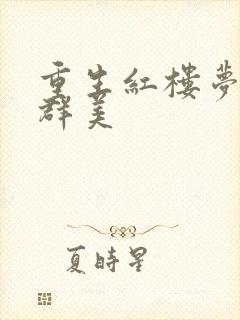 重生紅樓夢
群美
夏時星